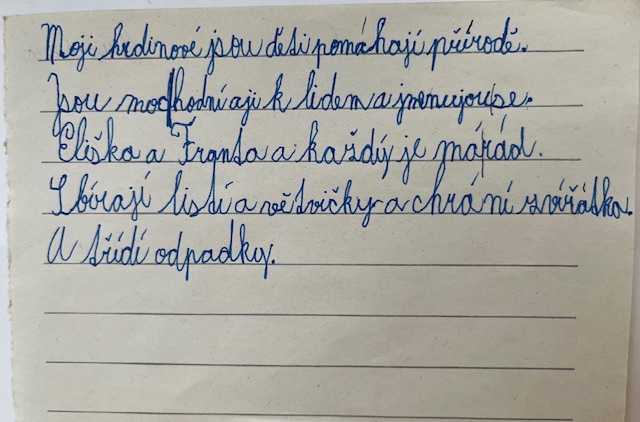 Moji hrdinové jsou děti pomáhají přírodě.
Jsou moc hodní aji k lidem a jmenujou se.
Eliška a Franta a každý je má rád.
Sbírají listí a větvičky a chrání zvířátka.
A třídí odpadky.